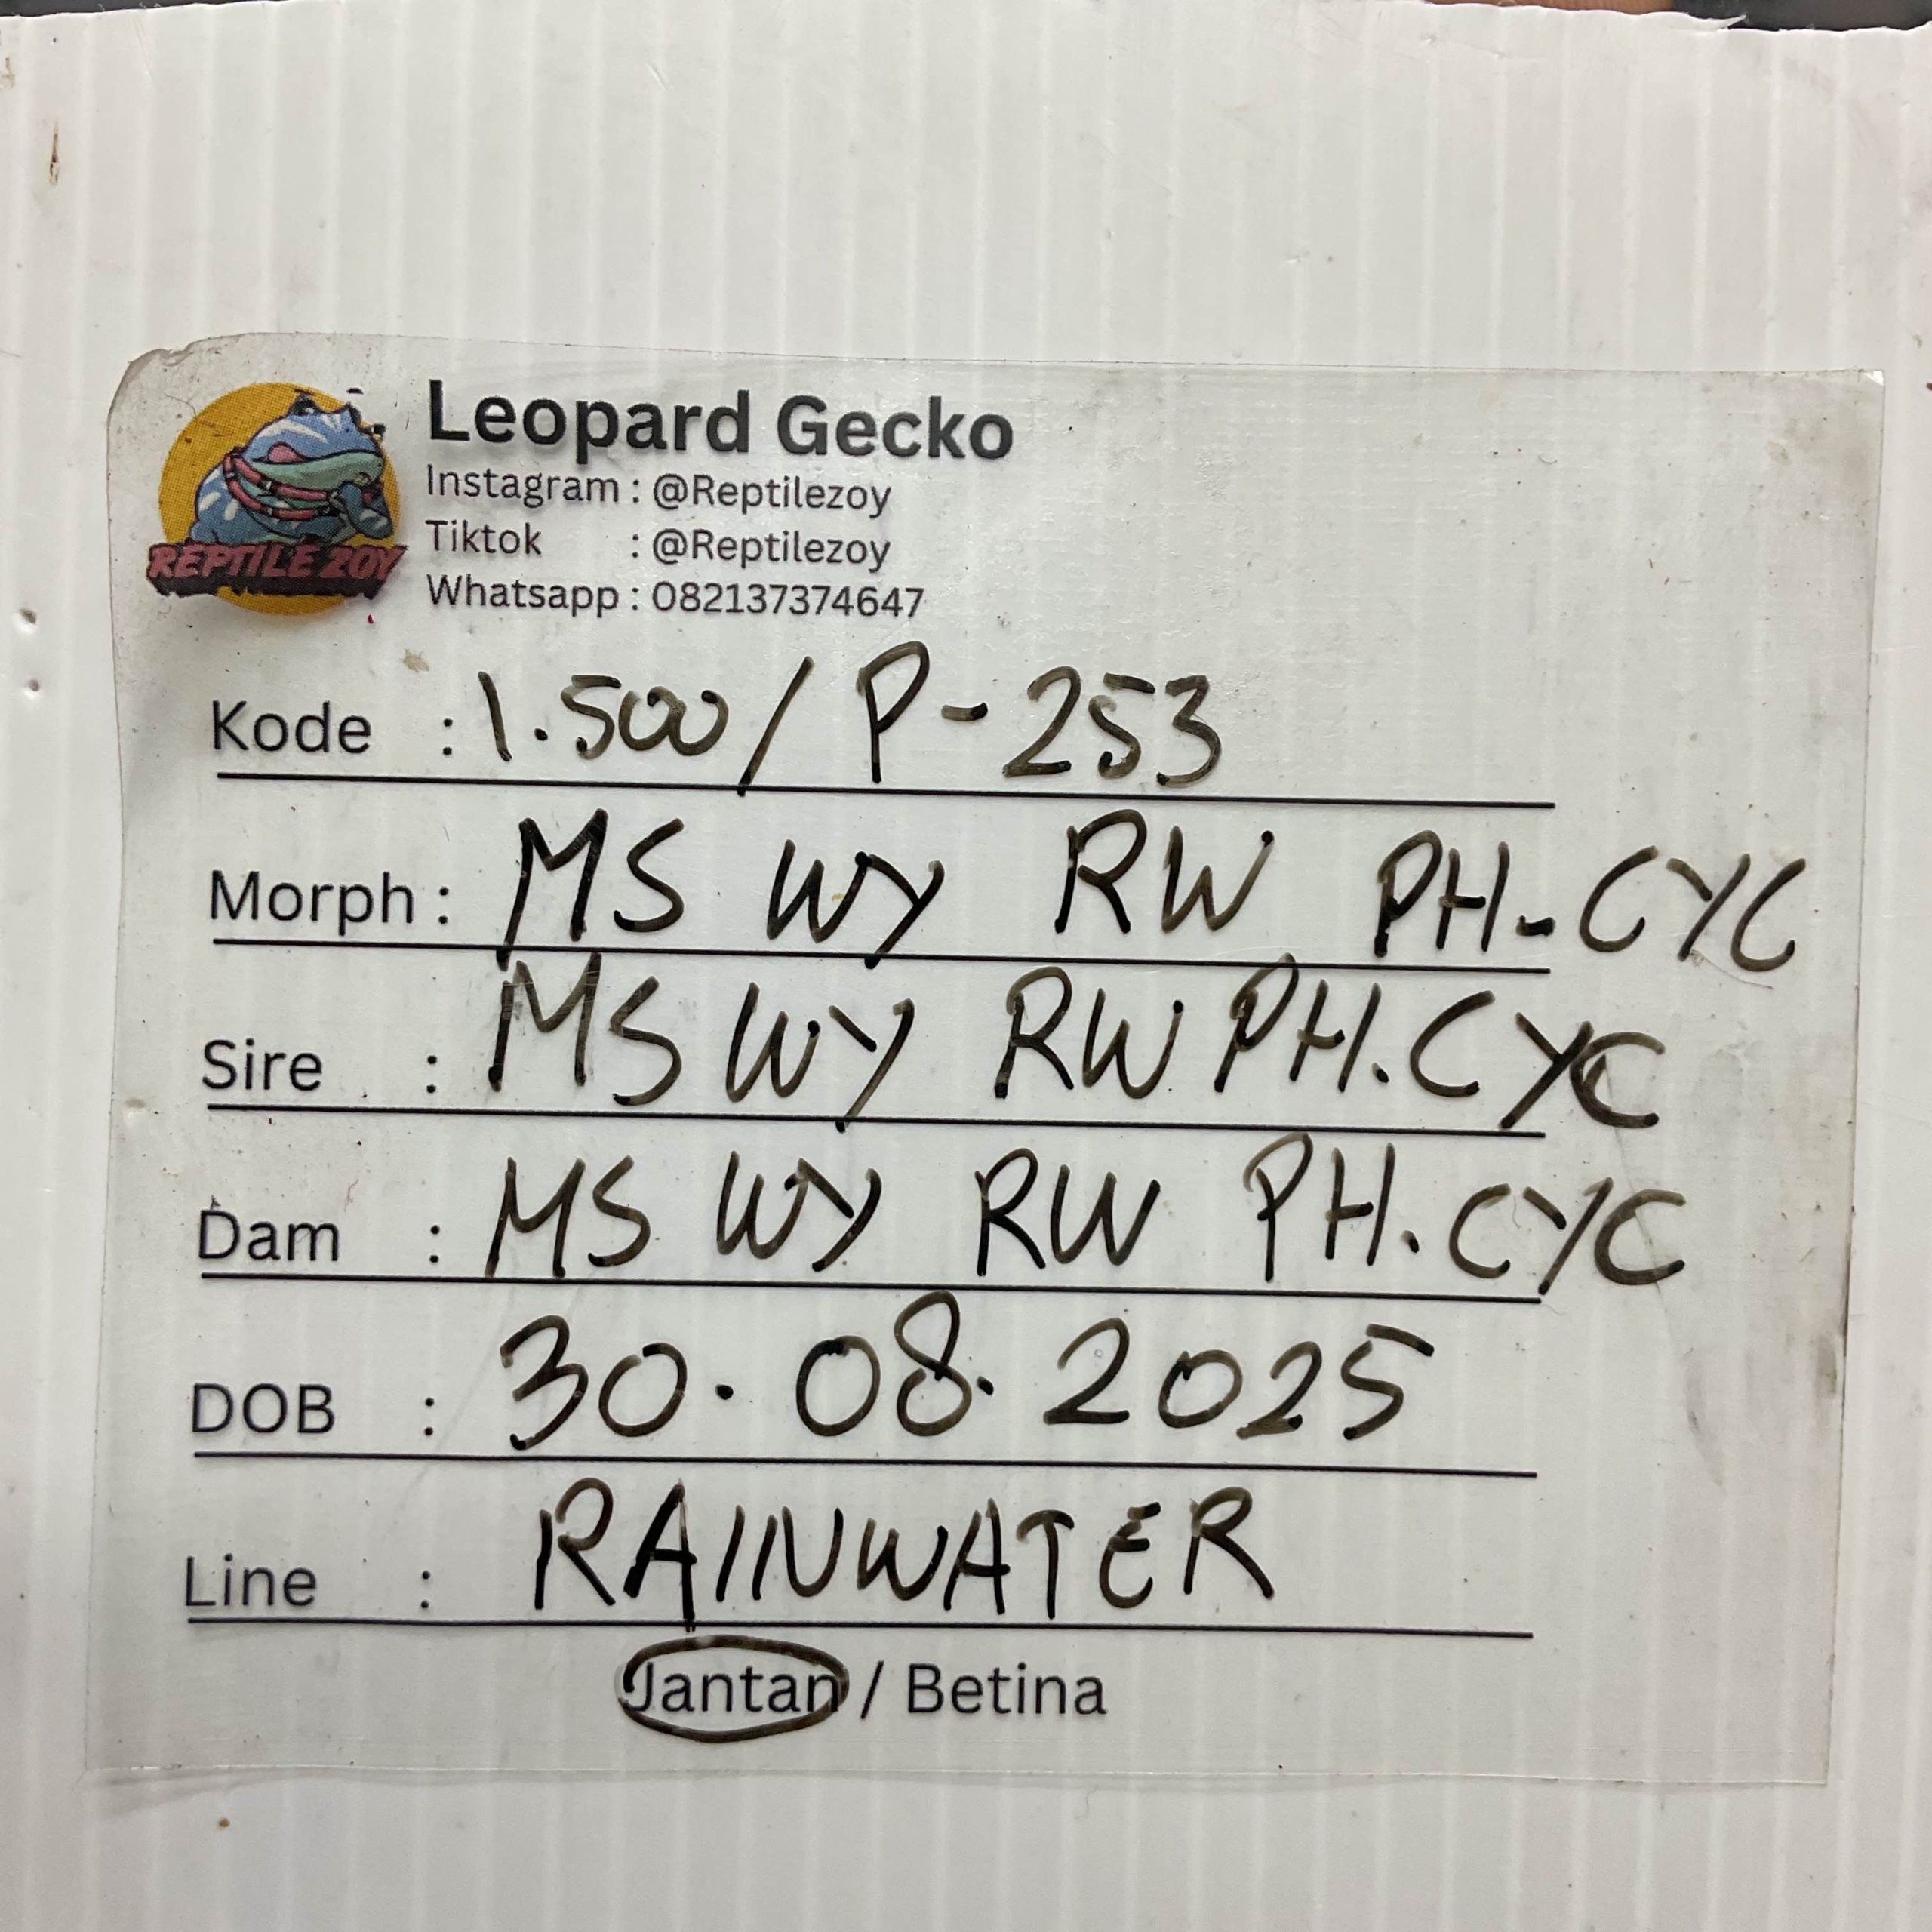 Leopard Gecko
Instagram : @Reptilezoy
Tiktok : @Reptilezoy
Whatsapp : 082137374647
REPTILE ZOY
Kode : 1.500 / P-253
Morph : MS WY RW PH-CYC
Sire : MS WY RW PH.CYC
Dam : MS WY RW PH.CYC
DOB : 30.08.2025
Line : RAINWATER
Jantan / Betina